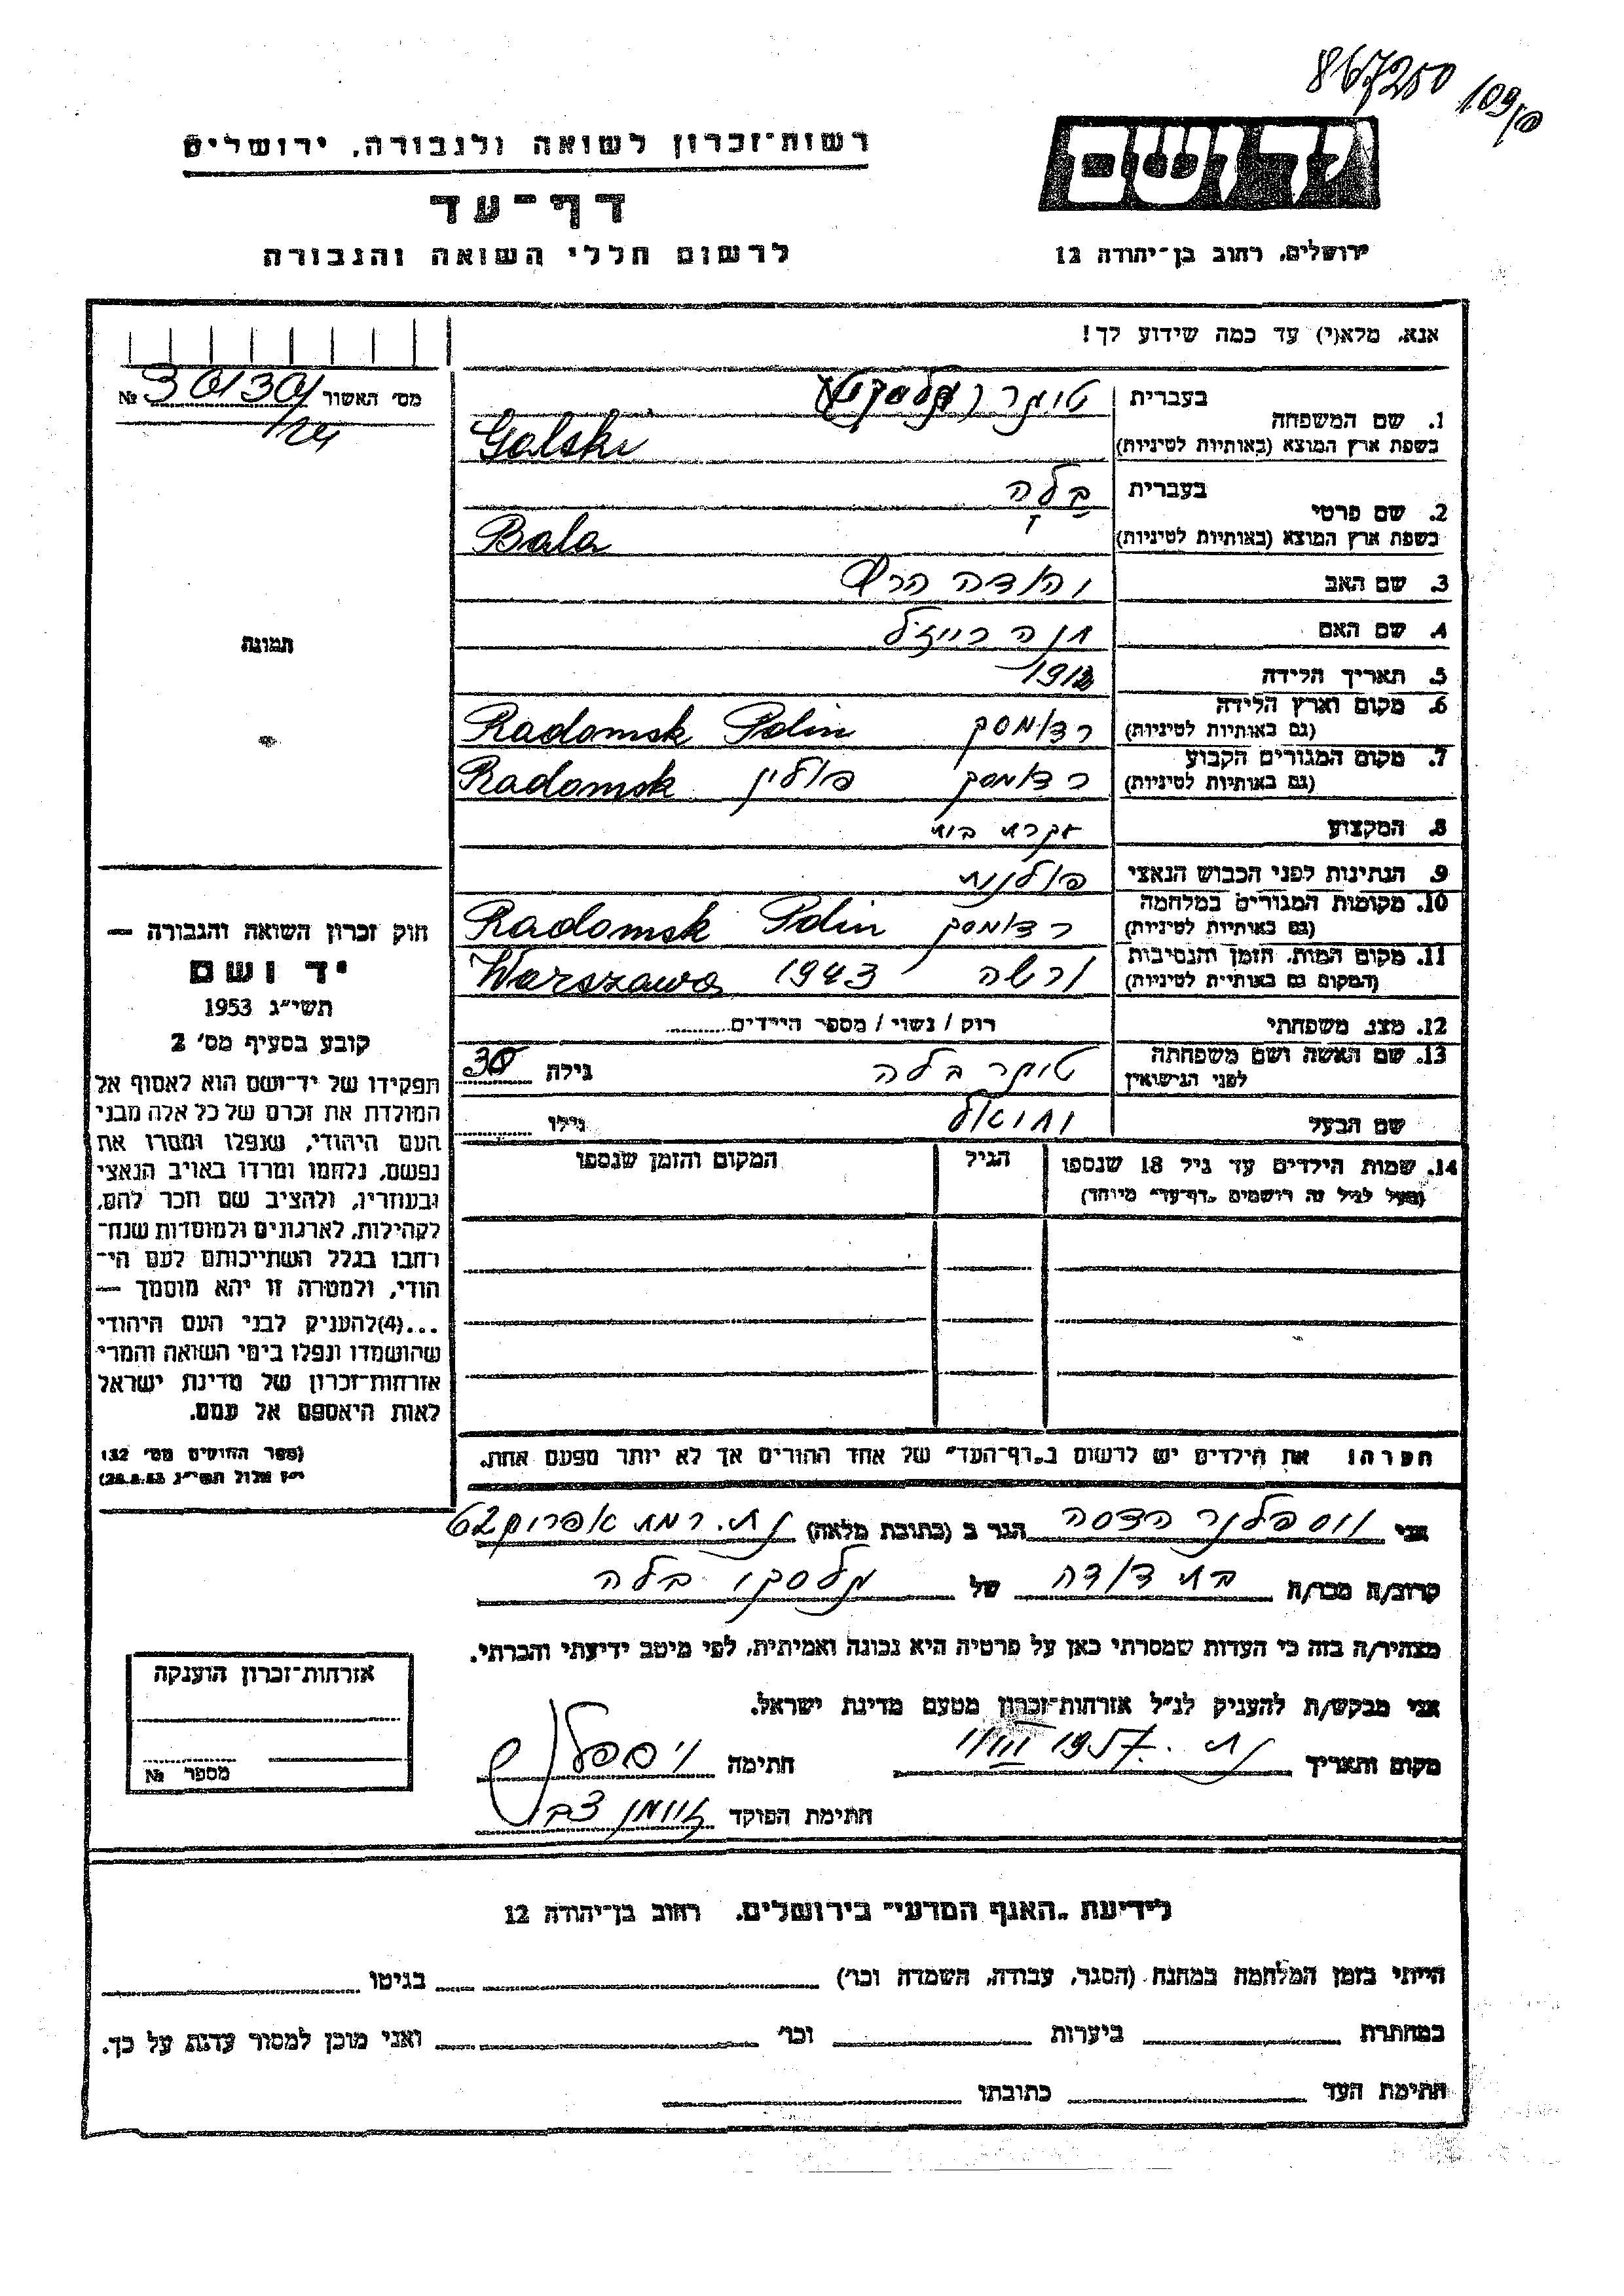 867250 109/פ
ידושם
רשות־זכרון לשואה ולגבורה, ירושלים
דף־עד
לרשום חללי השואה והגבורה
ירושלים, רחוב בן־יהודה 12
אנא, מלא(י) עד כמה שידוע לך!
מס׳ האשור № 30130/
1. שם המשפחה
בעברית
בשפת ארץ המוצא (באותיות לטיניות) Galski
2. שם פרטי
בעברית בלה
בשפת ארץ המוצא (באותיות לטיניות) Bala
3. שם האב
4. שם האם חנה רייזל
5. תאריך הלידה 1912
6. מקום וארץ הלידה
(גם באותיות לטיניות) רדומסק Radomsk Polin
7. מקום המגורים הקבוע
(גם באותיות לטיניות) רדומסק פולין Radomsk
8. המקצוע עקרת בית
9. הנתינות לפני הכבוש הנאצי פולנית
10. מקומות המגורים במלחמה
(גם באותיות לטיניות) רדומסק Radomsk Polin
11. מקום המות, הזמן והנסיבות
(המקום גם באותיות לטיניות) ורשה 1943 Warszawa
12. מצב משפחתי רוק / נשוי / מספר הילדים
13. שם האשה ושם משפחתה
לפני הנישואין בלה גילה 30
שם הבעל גילו
14. שמות הילדים עד גיל 18 שנספו הגיל המקום והזמן שנספו
(מעל לגיל זה רושמים „דף־עד״ מיוחד)
תמונה
חוק זכרון השואה והגבורה —
יד ושם
תשי״ג 1953
קובע בסעיף מס׳ 2
תפקידו של יד־ושם הוא לאסוף אל
המולדת את זכרם של כל אלה מבני
העם היהודי, שנפלו ומסרו את
נפשם, נלחמו ומרדו באויב הנאצי
ובעוזריו, ולהציב שם וזכר להם,
לקהילות, לארגונים ולמוסדות שנח־
רבו בגלל השתייכותם לעם הי־
הודי, ולמטרה זו יהא מוסמך —
...(4)להעניק לבני העם היהודי
שהושמדו ונפלו בימי השואה והמרי
אזרחות־זכרון של מדינת ישראל
לאות היאספם אל עמם.
(ספר החוקים מס׳ 132
י״ז אלול תשי״ג 28.8.53)
הערה: את הילדים יש לרשום ב„דף־העד״ של אחד ההורים אך לא יותר מפעם אחת.
אני הדסה הגר ב (כתובת מלאה) 62
קרוב/ה מכר/ה בת דודה של גלסקי בלה
מצהיר/ה בזה כי העדות שמסרתי כאן על פרטיה היא נכונה ואמיתית, לפי מיטב ידיעתי והכרתי.
אני מבקש/ת להעניק לנ״ל אזרחות־זכרון מטעם מדינת ישראל.
מקום ותאריך 1957 חתימה
חתימת הפוקד
אזרחות־זכרון הוענקה
מספר №
לידיעת „האגף המדעי״ בירושלים, רחוב בן־יהודה 12
הייתי בזמן המלחמה במחנה (הסגר, עבודה, השמדה וכו׳) בגיטו
במחתרת ביערות וכו׳ ואני מוכן למסור עדות על כך.
חתימת העד כתובתו